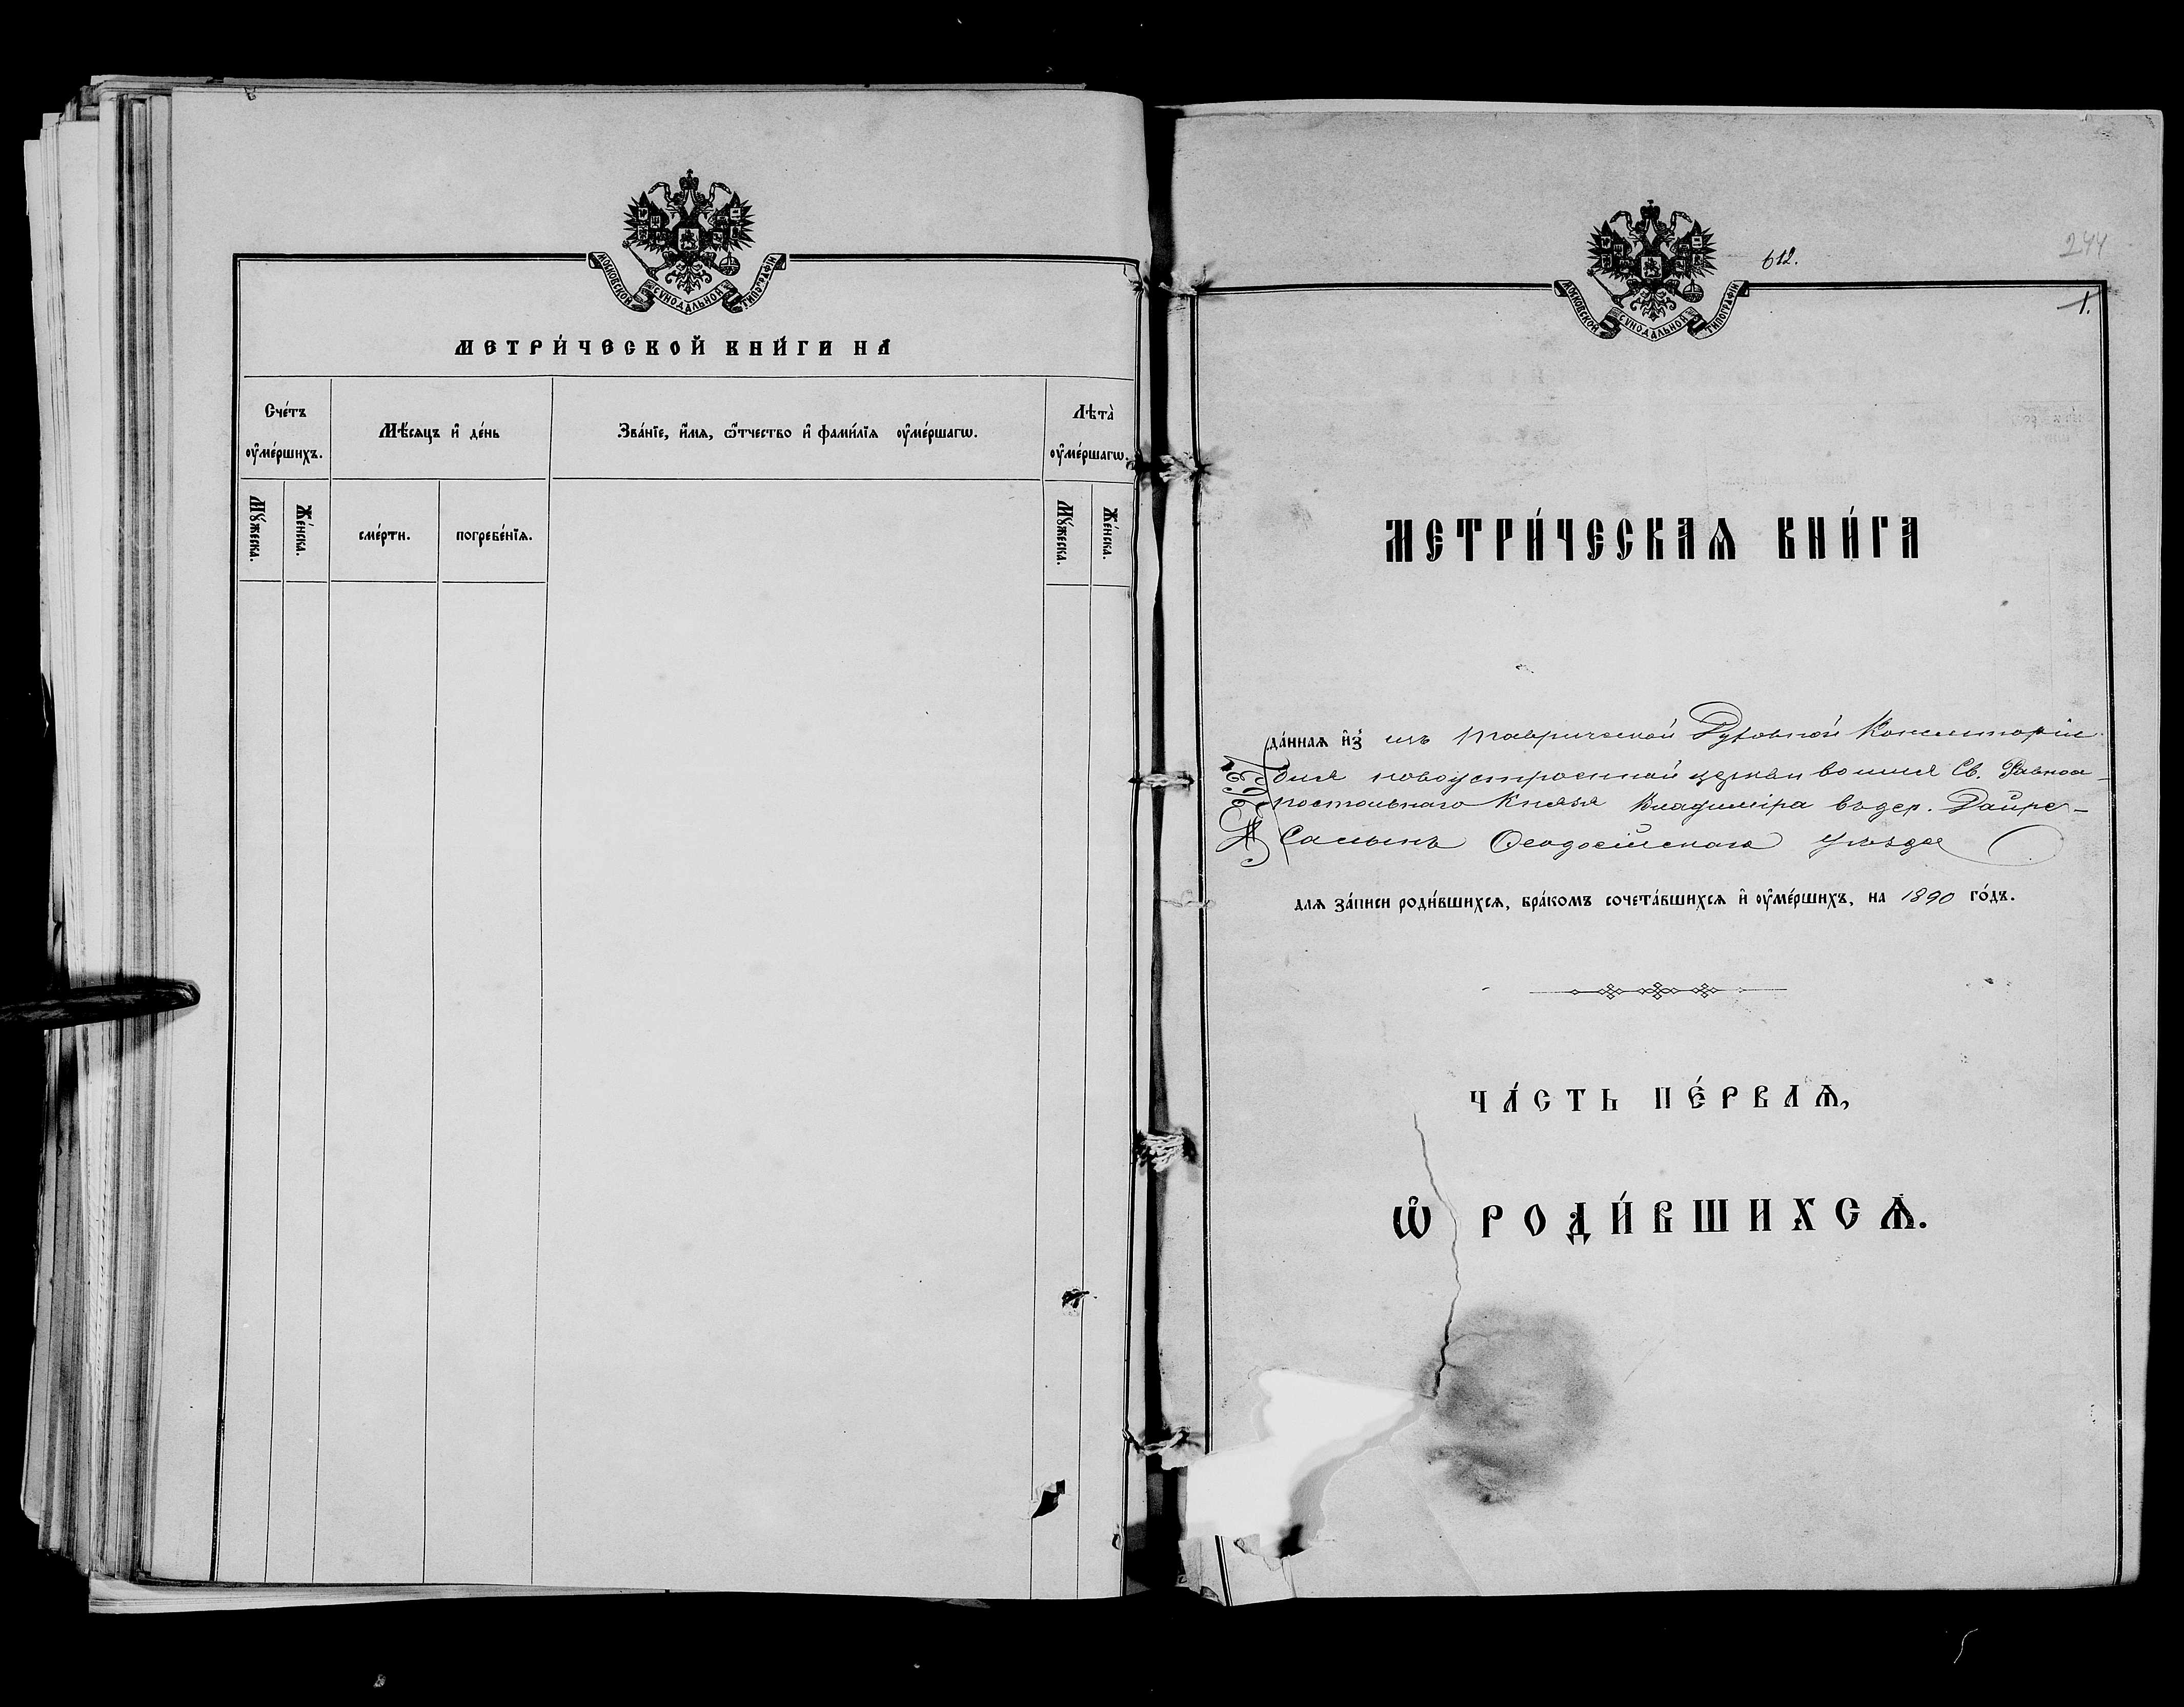 МОСКОВСКОЙ СУНОДАЛЬНОЙ ТИПОГРАФІИ
МЕТРИ́ЧЕСКОЙ КНИ́ГИ НА̀
Сче́тъ
ᲂу҆ме́ршихъ.
Мѣ́сяцъ и҆ де́нь
Зва́нїе, и҆́мѧ, ѻ҆́тчество и҆ фами́лїѧ ᲂу҆ме́ршагѡ.
Лѣта̀
ᲂу҆ме́ршагѡ.
Мꙋ́жеска.
Же́нска.
сме́рти.
погребе́нїѧ.
Мꙋ́жеска.
Же́нска.
612.
244
1.
МОСКОВСКОЙ СУНОДАЛЬНОЙ ТИПОГРАФІИ
МЕТРИ́ЧЕСКАѦ КНИ́ГА
да́ннаѧ и҆з̾ изъ Таврической Духовной Консисторіи
для новоустроенной церкви во имя Св. Равноа-
постольнаго Князя Владиміра въ дер. Дайре-
Салынъ Ѳеодосійскаго уѣзда
длѧ за́писи роди́вшихсѧ, бра́комъ сочета́вшихсѧ и҆ ᲂу҆ме́ршихъ, на 1890 го́дъ.
ЧА́СТЬ ПЕ́РВАѦ,
Ѡ҆ РОДИ́ВШИХСѦ.